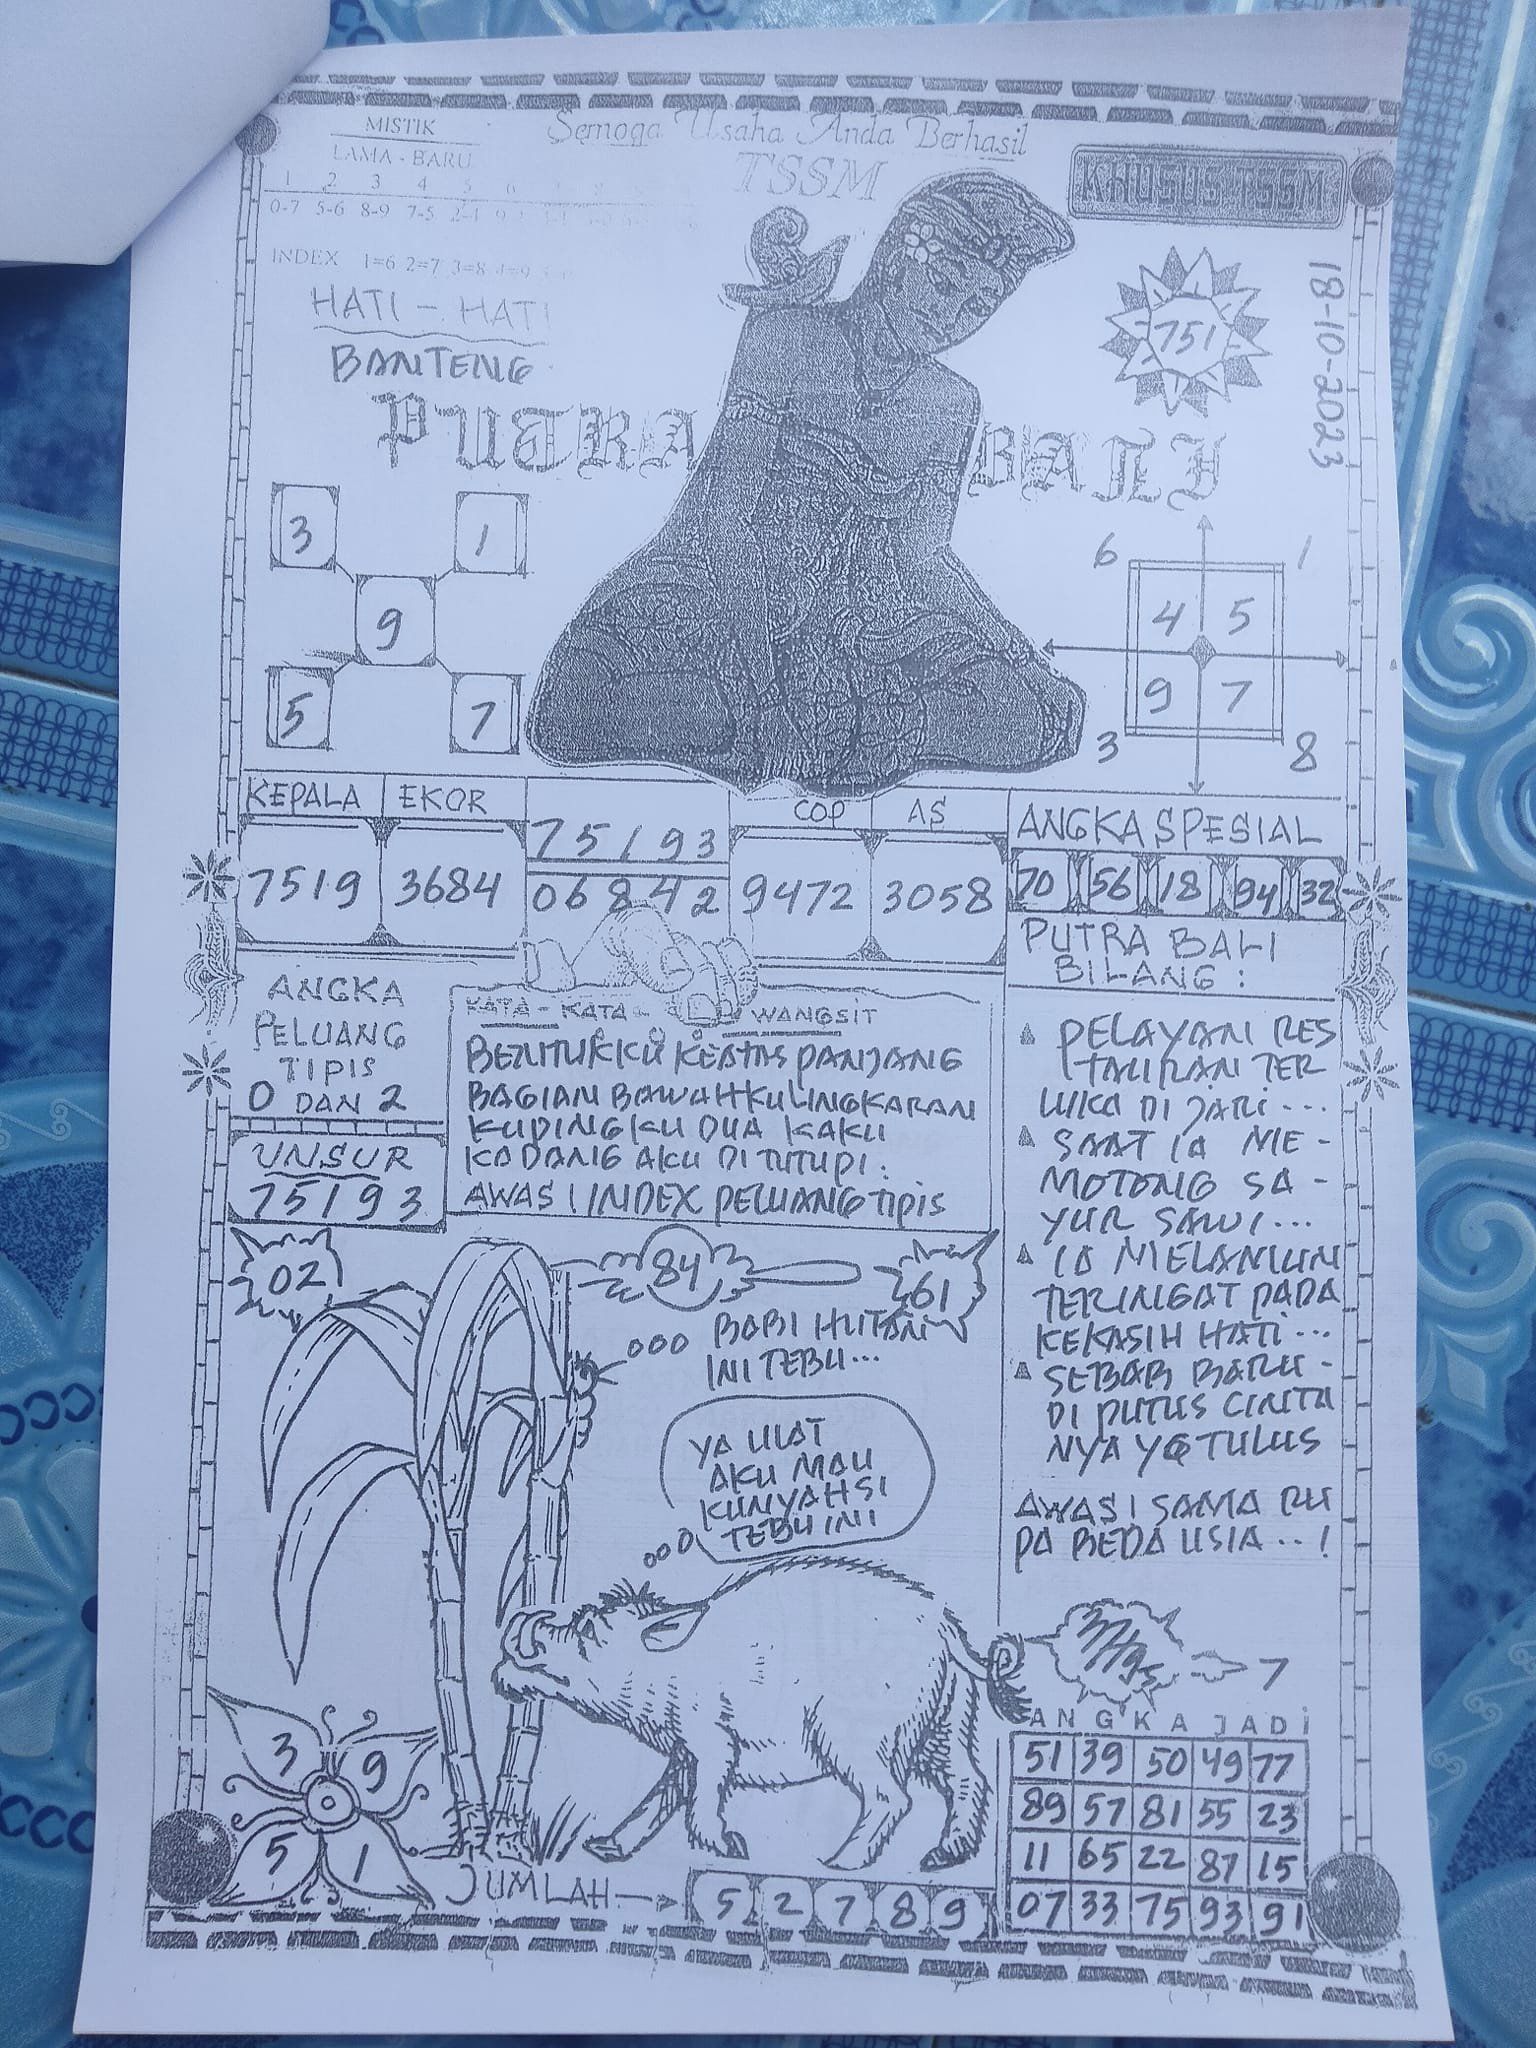 MISTIK
LAMA - BARU
1 2 3 4 5
0-7 5-6 8-9 7-5 2-1
INDEX 1=6 2=7 3=8 4=9
Semoga Usaha Anda Berhasil
TSSM
KHUSUS TSSM
18-10-2023
751
HATI - HATI
BANTENG
PUTRA BALI
3 1
9
5 7
6 1
4 5
9 7
3 8
KEPALA EKOR
7519 3684
75193
06842
COP AS
9472 3058
ANGKA SPESIAL
70 56 18 94 32
PUTRA BALI
BILANG :
PELAYAN RES
TAURAN TER
LUKA DI JARI ...
SAAT IA ME -
MOTONG SA -
YUR SAWI ...
IA MELAMUN
TERINGAT PADA
KEKASIH HATI ...
SEBAB BARU -
DI PUTUS CINTA
NYA YG TULUS
AWAS ! SAMA RU
PA BEDA USIA ... !
ANGKA
PELUANG
TIPIS
0 DAN 2
UNSUR
75193
KATA - KATA - WANGSIT
BENTUKKU KEATAS PANJANG
BAGIAN BAWAHKU LINGKARAN
KUPINGKU DUA KAKU
KADANG AKU DI TUTUPI .
AWAS ! INDEX PELUANG TIPIS
02
84
61
BABI HUTAN
INI TEBU ...
YA ULAT
AKU MAU
KUNYAH SI
TEBU INI
3 9
5 1
JUMLAH
5 2 7 8 9
7
ANGKA JADI
51 39 50 49 77
89 57 81 55 23
11 65 22 87 15
07 33 75 93 91